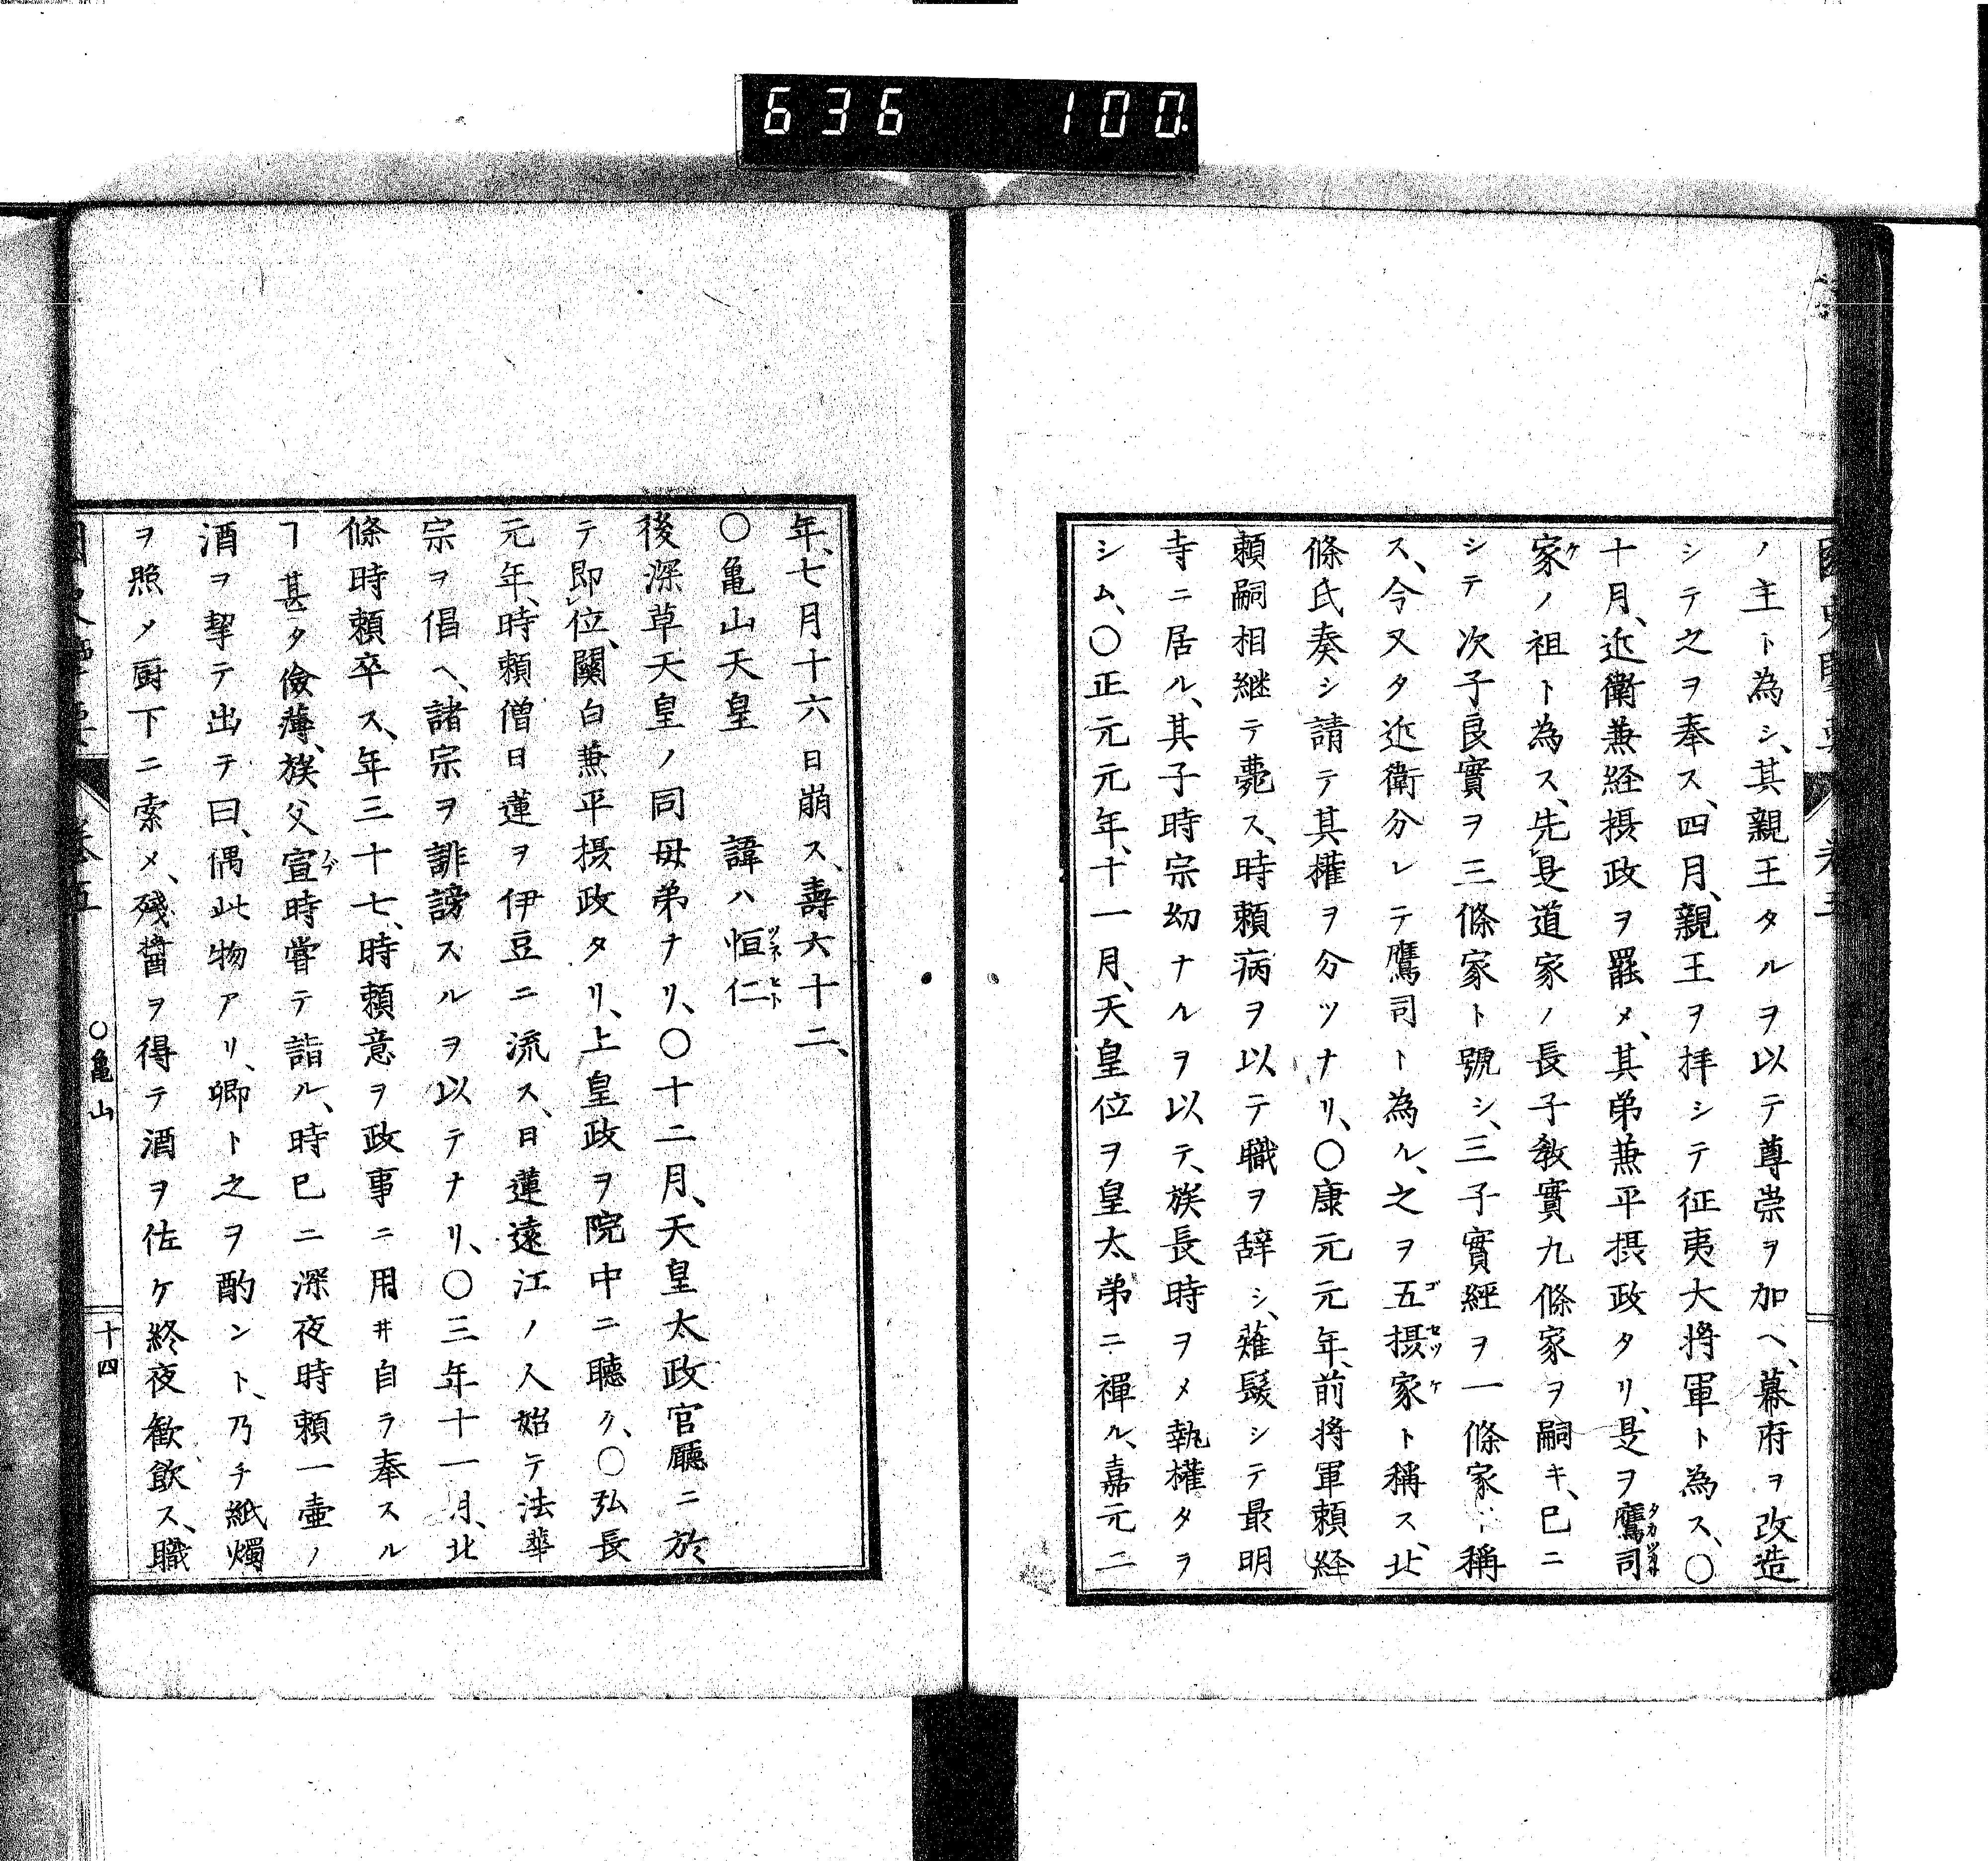 636 100.
ノ主ト為シ、其親王タルヲ以テ尊崇ヲ加ヘ、幕府ヲ改造
シテ之ヲ奉ス、四月、親王ヲ拝シテ征夷大将軍ト為ス、〇
十月、近衛兼経摂政ヲ罷メ、其弟兼平摂政タリ、是ヲ鷹司
家ノ祖ト為ス、先是道家ノ長子教實九條家ヲ嗣キ、已ニ
シテ次子良實ヲ三條家ト號シ、三子實經ヲ一條家ト稱
ス、今又タ近衛分レテ鷹司ト為ル、之ヲ五摂家ト稱ス、北
條氏奏シ請テ其權ヲ分ツナリ、〇康元元年、前将軍頼経
頼嗣相継テ薨ス、時頼病ヲ以テ職ヲ辞シ、薙髮シテ最明
寺ニ居ル、其子時宗幼ナルヲ以テ、族長時ヲメ執權タラ
シム、〇正元元年、十一月、天皇位ヲ皇太弟ニ禪ル、嘉元二
年、七月十六日崩ス、壽六十二、
〇亀山天皇 諱ハ恒仁
後深草天皇ノ同母弟ナリ、〇十二月、天皇太政官廳ニ於
テ即位、關白兼平摂政タリ、上皇政ヲ院中ニ聽ク、〇弘長
元年、時頼僧日蓮ヲ伊豆ニ流ス、日蓮遠江ノ人始テ法華
宗ヲ倡ヘ、諸宗ヲ誹謗スルヲ以テナリ、〇三年十一月、北
條時頼卒ス、年三十七、時頼意ヲ政事ニ用井自ラ奉スル
ヿ甚タ儉薄、族父宣時嘗テ詣ル、時已ニ深夜時頼一壷ノ
酒ヲ挈テ出テ曰、偶此物アリ、卿ト之ヲ酌ント、乃チ紙燭
ヲ照メ厨下ニ索メ、殘醬ヲ得テ酒ヲ佐ケ終夜歓飲ス、職
〇亀山 十四